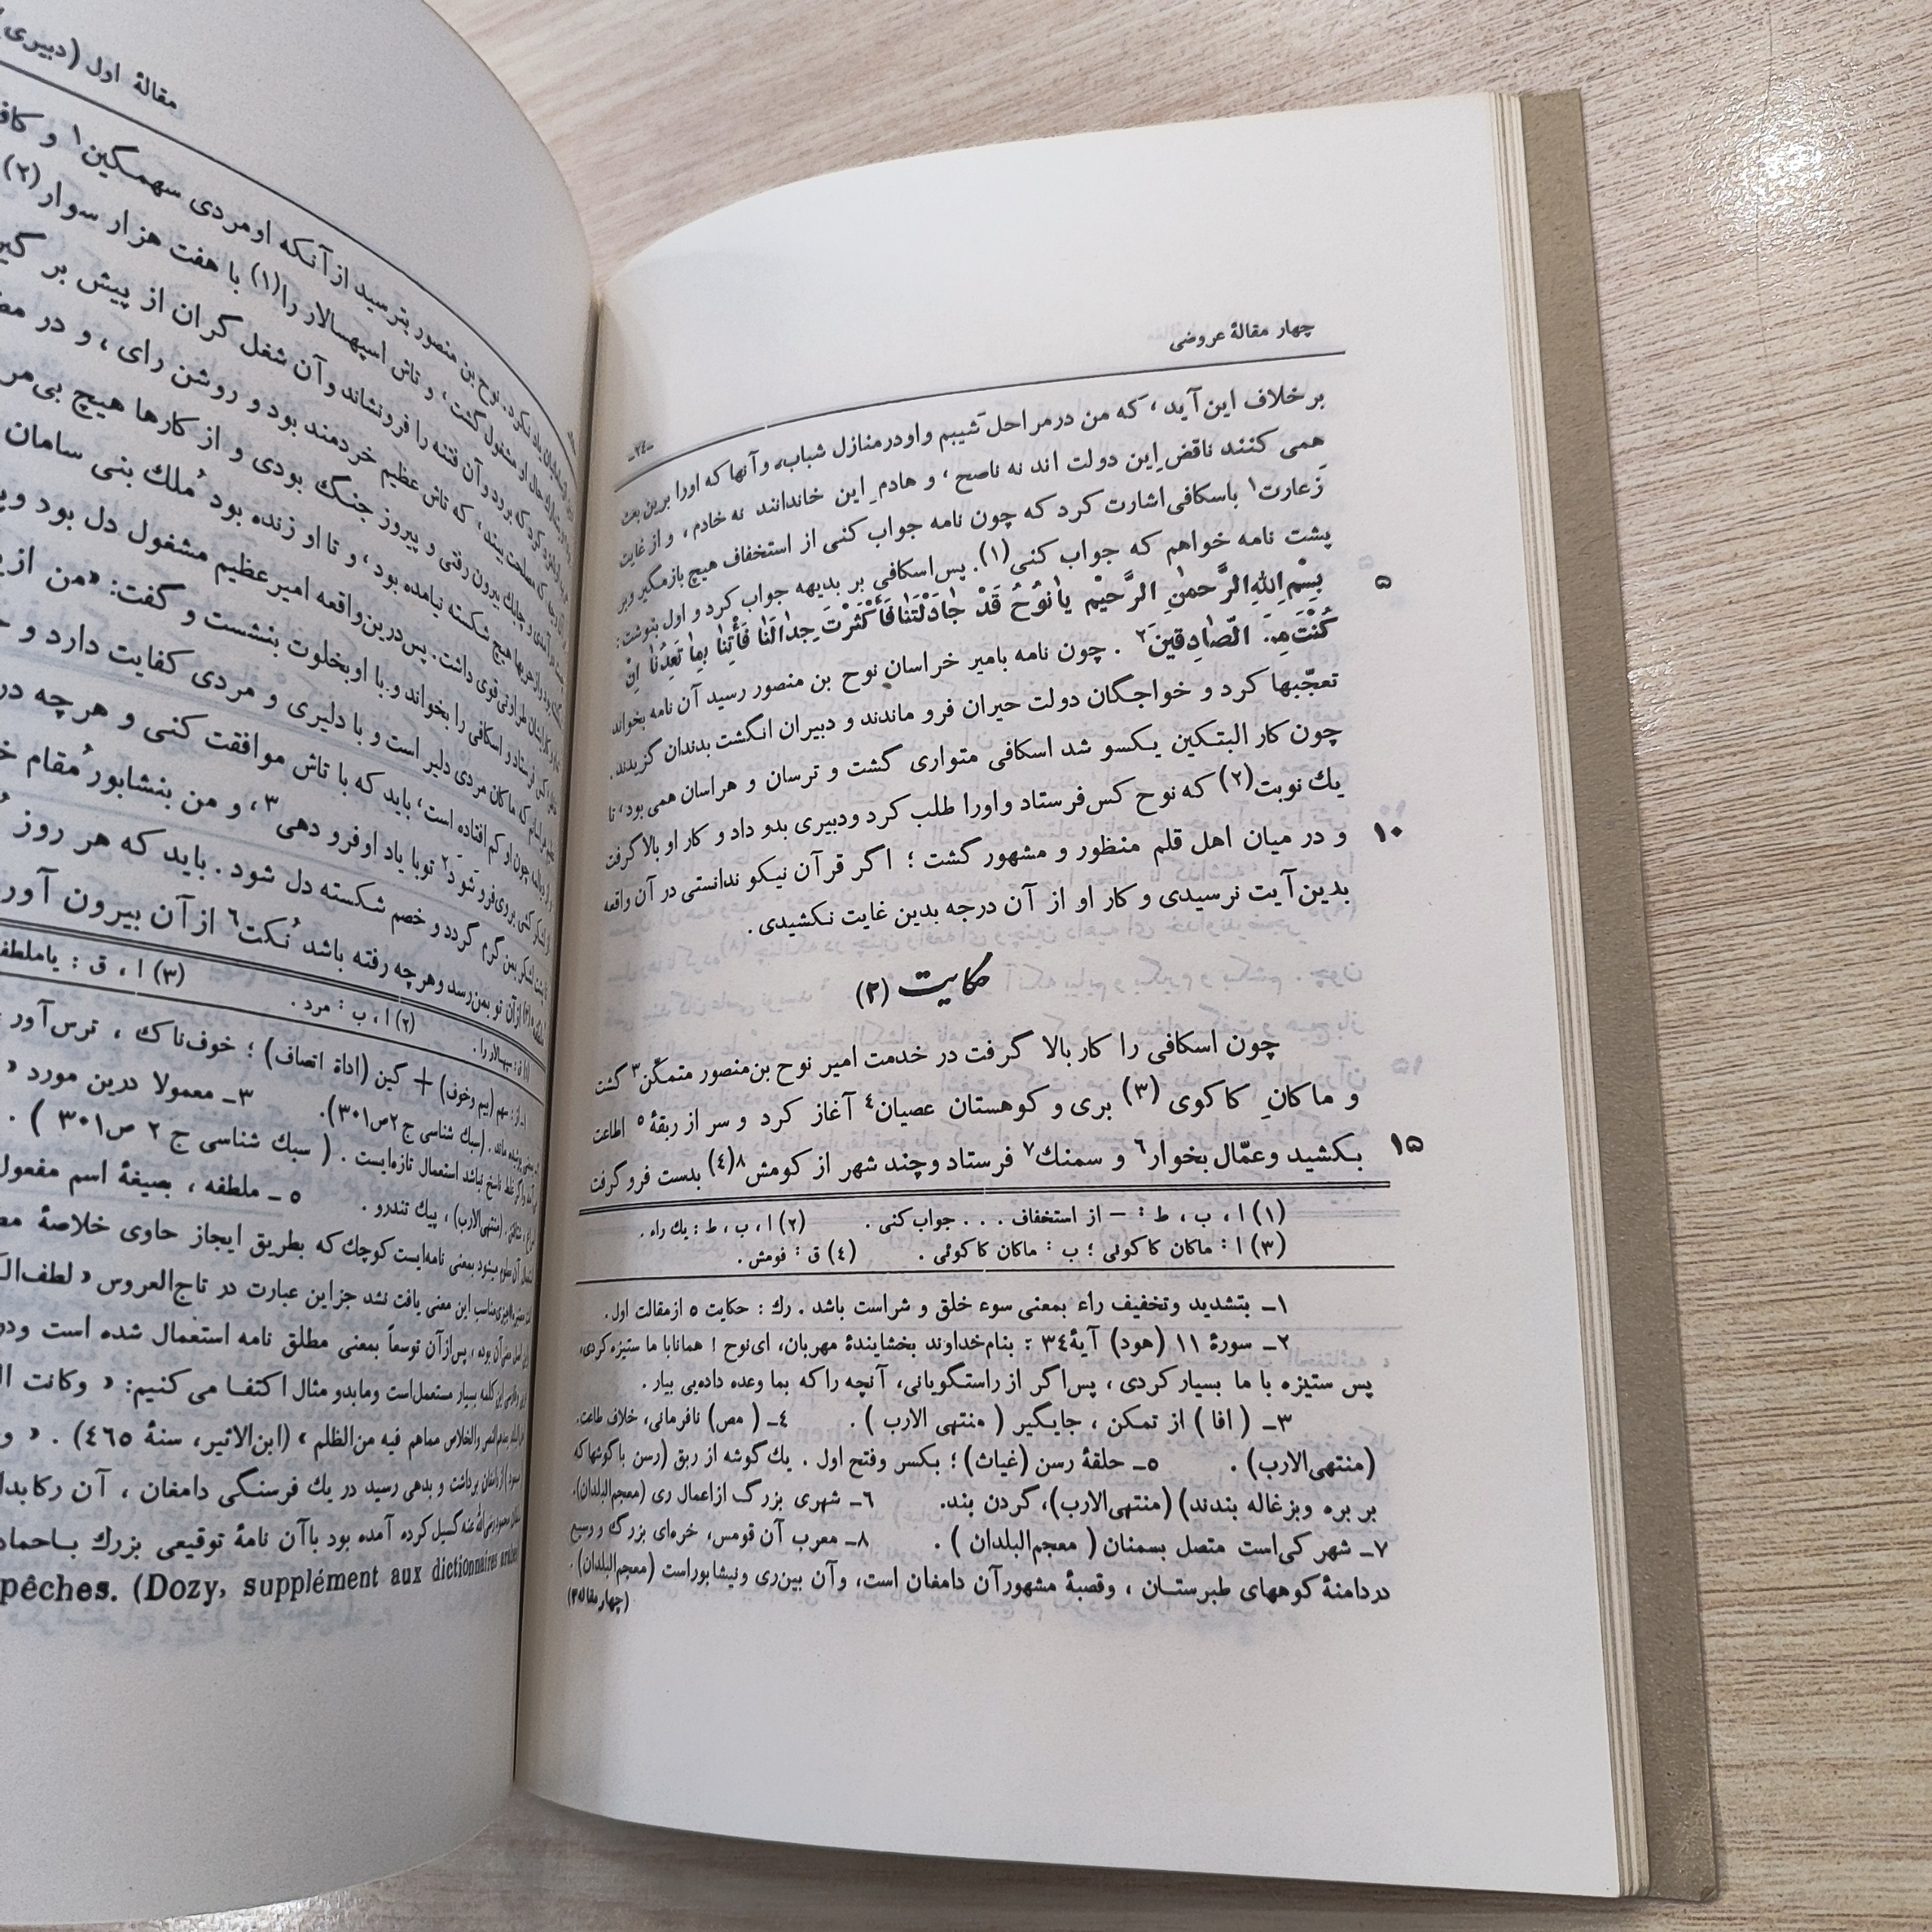 چهار مقالهٔ عروضی
-٢٤-
بر خلاف این آید، که من در مراحل شیبم و او در منازل شباب، و آنها که او را برین بعث
همی کنند ناقضِ این دولت اند نه ناصح، و هادمِ این خاندانند نه خادم، و از غایت
زَعارت١ باسکافی اشارت کرد که چون نامه جواب کنی از استخفاف هیچ بازمگیر و بر
پشت نامه خواهم که جواب کنی(١). پس اسکافی بر بدیهه جواب کرد و اول بنوشت:
٥
بِسْمِ اللهِ الرَّحمٰنِ الرَّحیْمِ یٰا نُوْحُ قَدْ جٰادَلْتَنٰا فَأَکْثَرْتَ جِدٰالَنٰا فَأْتِنٰا بِمٰا تَعِدُنٰا اِنْ
کُنْتَ مِنَ الصّٰادِقینَ٢. چون نامه بامیر خراسان نوح بن منصور رسید آن نامه بخواند
تعجّبها کرد و خواجگان دولت حیران فرو ماندند و دبیران انگشت بدندان گزیدند.
چون کار البتکین یکسو شد اسکافی متواری گشت و ترسان و هراسان همی بود، تا
یك نوبت(٢) که نوح کس فرستاد و او را طلب کرد و دبیری بدو داد و کار او بالا گرفت
١٠
و در میان اهل قلم منظور و مشهور گشت؛ اگر قرآن نیکو ندانستی در آن واقعه
بدین آیت نرسیدی و کار او از آن درجه بدین غایت نکشیدی.
حکایت (٣)
چون اسکافی را کار بالا گرفت در خدمت امیر نوح بن منصور متمکّن٣ گشت
و ماکانِ کاکوی (٣) بری و کوهستان عصیان٤ آغاز کرد و سر از ربقهٔ٥ اطاعت
١٥
بکشید و عمّال بخوار٦ و سمنك٧ فرستاد و چند شهر از کومش٨(٤) بدست فرو گرفت
(١) ا، ب، ط: – از استخفاف . . . جواب کنی. (٢) ا، ب، ط: یك راه.
(٣) ا: ماکان کاکوئی؛ ب: ماکان کاکوئی. (٤) ق: قومش.
١– بتشدید و تخفیف راء بمعنی سوء خلق و شراست باشد. رك: حکایت ٥ از مقالت اول.
٢– سورهٔ ١١ (هود) آیهٔ ٣٤: بنام خداوند بخشایندهٔ مهربان، ای نوح! همانا با ما ستیزه کردی،
پس ستیزه با ما بسیار کردی، پس اگر از راستگویانی، آنچه را که بما وعده داده‌یی بیار.
٣– (افا) از تمکن، جایگیر (منتهی الارب). ٤– (مص) نافرمانی، خلاف طاعت.
(منتهی الارب). ٥– حلقهٔ رسن (غیاث)؛ بکسر و فتح اول. یك گوشه از ربق (رسن با گوشها که
بر بره و بزغاله بندند) (منتهی الارب)، گردن بند. ٦– شهری بزرگ از اعمال ری (معجم البلدان).
٧– شهرکی است متصل بسمنان (معجم البلدان). ٨– معرب آن قومس، خره‌ای بزرگ و وسیع
در دامنهٔ کوههای طبرستان، و قصبهٔ مشهور آن دامغان است، و آن بین ری و نیشابور است (معجم البلدان).
(چهار مقاله ٣)
مقالهٔ اول (دبیری)
نوح بن منصور بترسید از آنکه او مردی سهمگین١ و
و تاش اسپهسالار را(١) با هفت هزار سوار(٢)
و آن فتنه را فرونشاند و آن شغل گران از پیش بر
که تاش عظیم خردمند بود و روشن رای، و در
بیرون رفتی و پیروز جنگ بودی و از کارها هیچ
هیچ شکسته نیامده بود، و تا او زنده بود مُلك بنی سامان
پس درین واقعه امیر عظیم مشغول دل بود
و اسکافی را بخواند و با او بخلوت بنشست و گفت: «من از
که ماکان مردی دلیر است و با دلیری و مردی کفایت دارد و
افتاده است، باید که با تاش موافقت کنی و هر چه در
فرو شود٢ تو با یاد او فرو دهی٣، و من بنشابور مُقام
گرم گردد و خصم شکسته دل شود. باید که هر روز
تو بمن رسد و هر چه رفته باشد نُکت٦ از آن بیرون
سپهسالار را. (٢) ا، ب: مرد. (٣) ا، ق: یا
سهم (بیم و خوف) + گین (اداة اتصاف)؛ خوف‌ناك، ترس‌آور
(سبك شناسی ج ٢ ص ٣٠١). ٣– معمولا درین مورد «
استعمال تازه‌ایست. (سبك شناسی ج ٢ ص ٣٠١).
(منتهی الارب)، پیك تندرو. ٥– ملطفه، بصیغهٔ اسم مفعول
بمعنی نامه‌ایست کوچك که بطریق ایجاز حاوی خلاصهٔ
این معنی یافت نشد جز این عبارت در تاج العروس «
پس از آن توسعاً بمعنی مطلق نامه استعمال شده است
این کلمه بسیار مستعمل است و ما بدو مثال اکتفا می کنیم: « وکانت
والخلاص مماهم فیه من الظلم » (ابن الاثیر، سنهٔ ٤٦٥). «
برداشت و بدهی رسید در یك فرسنگی دامغان، آن
گسیل کرده آمده بود با آن نامهٔ توقیعی بزرك
pêches. (Dozy, supplément aux dictionnaires arabes